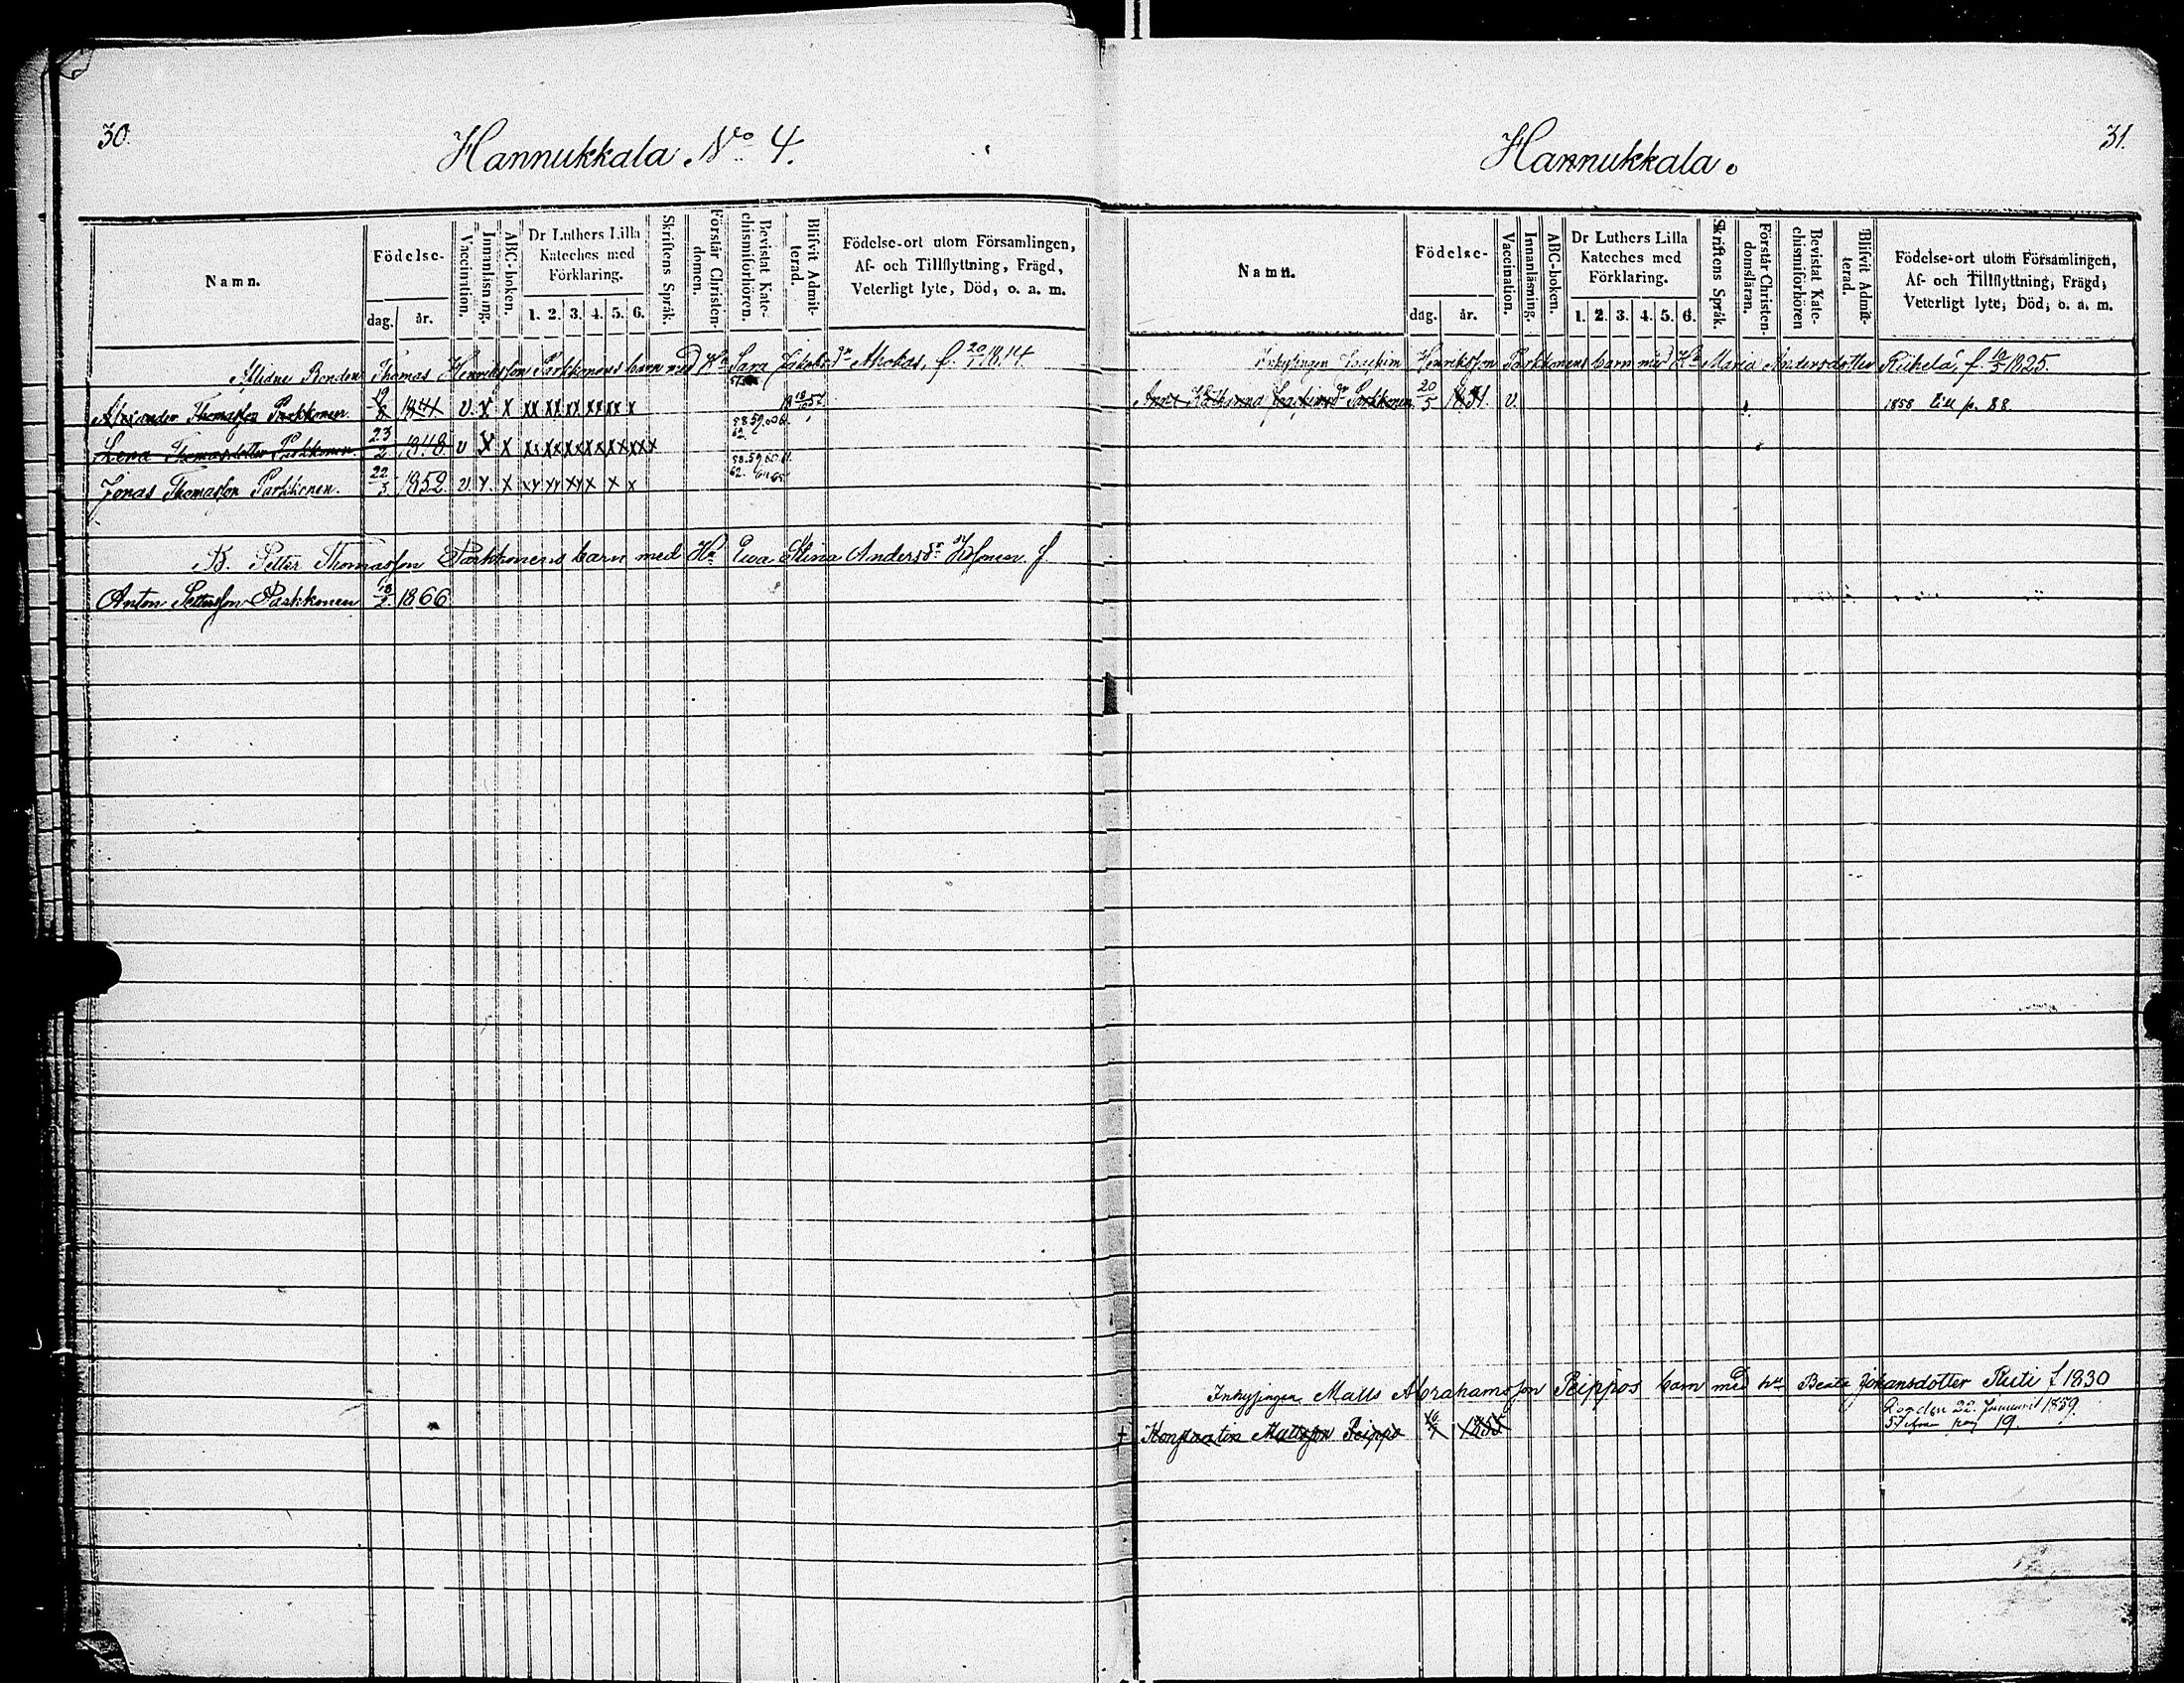 30.
Hannukkala No 4.
Namn.
Födelse-
dag.
år.
Vaccination.
Innanläsning.
ABC-boken.
Dr Luthers Lilla
Kateches med
Förklaring.
1. 2. 3. 4. 5. 6.
Skriftens Språk.
Förstår Christen-
domen.
Bevistat Kate-
chismiförhören.
Blifvit Admit-
terad.
Födelse-ort utom Församlingen,
Af- och Tillflyttning, Frägd,
Veterligt lyte, Död, o. a. m.
Aflidne Bonden Thomas Henriksson Parkkonens barn med Hu Sara Jakobsdr f. 20/1 1814.
Alexander Thomasson Parkkonen 1841 v. x x xx xx xx xx xx x
Lena Thomasdotter Parkkonen 23/2 1848 v x x
Jonas Thomasson Parkkonen. 22/3 1852 v. x. x xx xx xx x x x
B. Petter Thomasson Parkkonens barn med Hu Ewa Stina Andersdr f
Anton Pettersson Parkkonen 18/2 1866
31.
Hannukkala.
Namn.
Födelse-
dag.
år.
Vaccination.
Innanläsning.
ABC-boken.
Dr Luthers Lilla
Kateches med
Förklaring.
1. 2. 3. 4. 5. 6.
Skriftens Språk.
Förstår Christen-
domsläran.
Bevistat Kate-
chismiförhören
Blifvit Admit-
terad.
Födelse-ort utom Församlingen,
Af- och Tillflyttning, Frägd,
Veterligt lyte, Död, o. a. m.
Inhysingen Joachim Henriksson Parkkonens barn med Hu Maria Andersdotter Riihelä, f. 10/5 1825.
Anna Katharina Joachimsdr Parkkonen 20/5 1851 v. 1858 p. 88
Inhysingen Matts Abrahamsson Peippos barn med hu Beata Johansdotter Ruti f 1830
Konstantin Mattsson Peippo 1855 den 22 Januari 1859.
pag 19